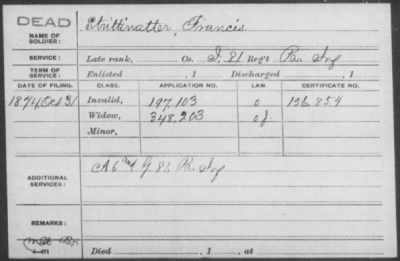 DEAD
NAME OF SOLDIER: Strittmatter, Francis
SERVICE: Late rank, Co. I, 81 Reg't Pa. Inf
TERM OF SERVICE: Enlisted , 1 Discharged , 1
DATE OF FILING. CLASS. APPLICATION NO. LAW. CERTIFICATE NO.
1874 Oct 31 Invalid, 197.103 136.854
Widow, 348.203
Minor,
ADDITIONAL SERVICES: G. 81. Pa. Inf
REMARKS:
Died , 1 , at